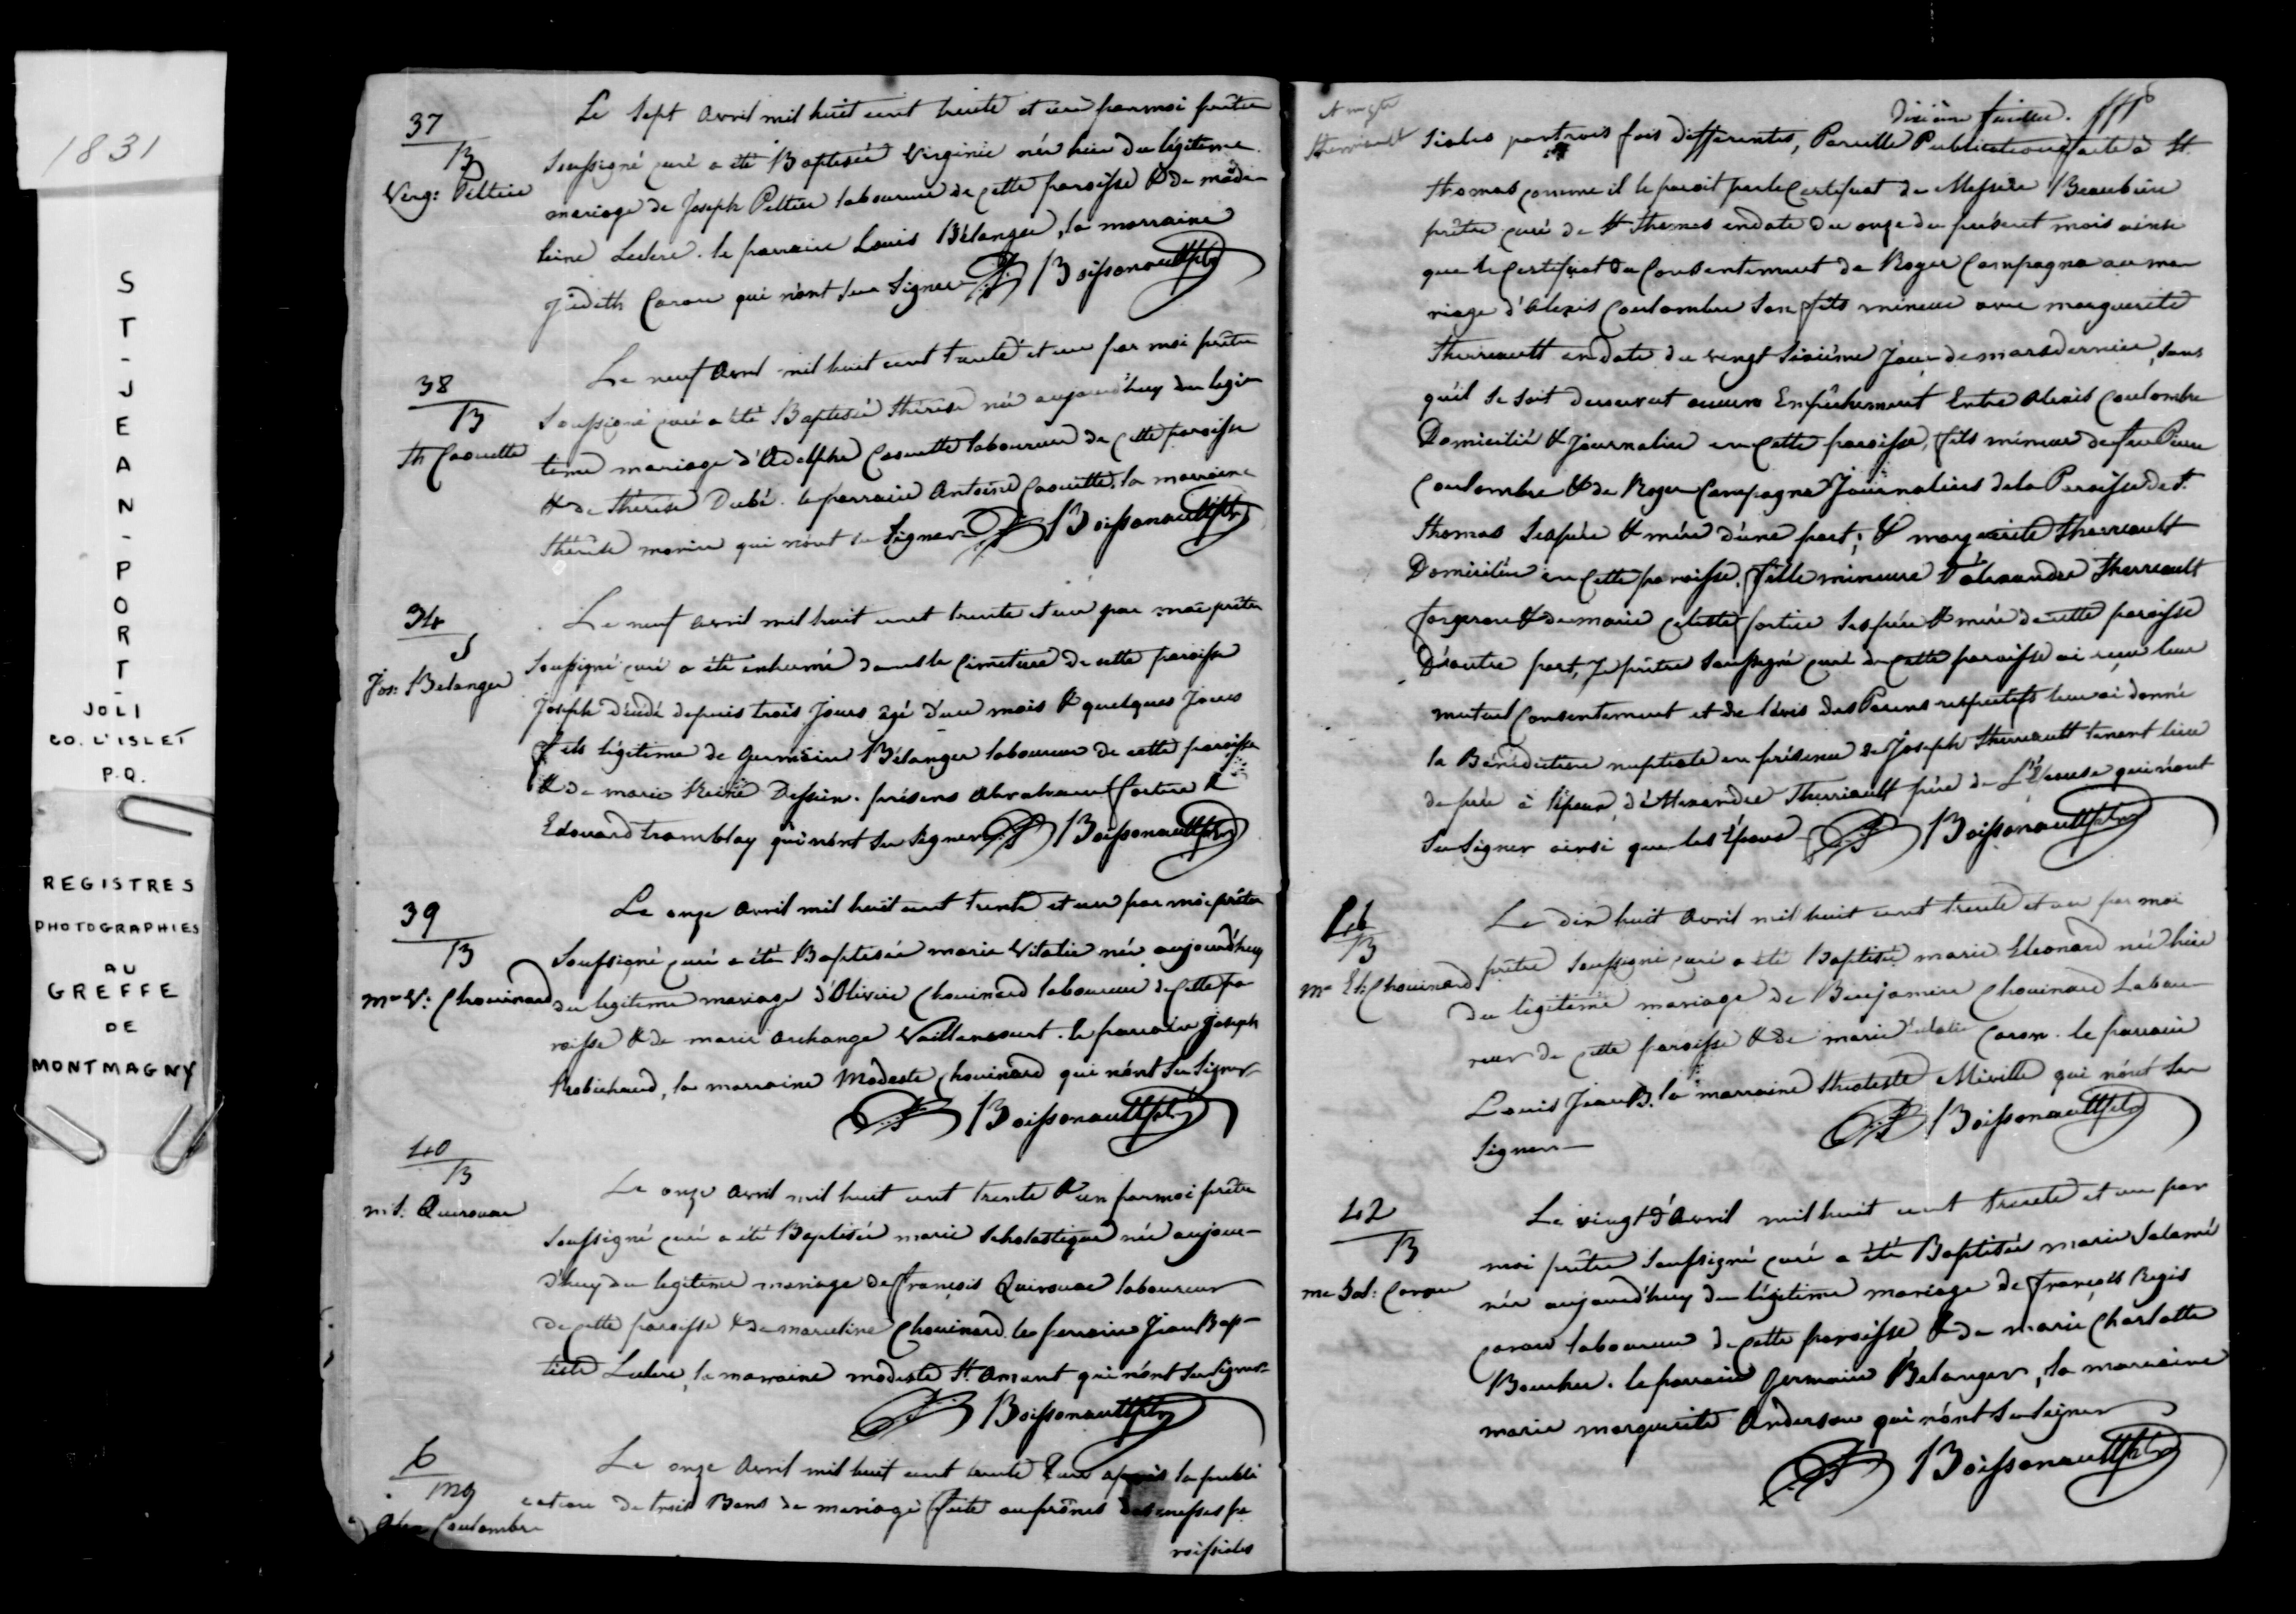 1831
ST-JEAN-PORT-
JOLI
CO. L'ISLET
P.Q.
REGISTRES
PHOTOGRAPHIES
AU
GREFFE
DE
MONTMAGNY
37
B
Virg: Peltier
Le sept avril mil huit cent trente et un par moi prêtre
soussigné curé a été Baptisée Virginie née hier du légitime
mariage de Joseph Peltier laboureur de cette paroisse & de made-
leine Leclerc. le parrain Louis Bélanger, la marraine
Judith Caron qui n'ont su signer Boissonault ptre
38
B
Th Caouette
Le neuf avril mil huit cent trente et un par moi prêtre
soussigné curé a été Baptisée thérèse née aujourd'huy du legi-
time mariage d'Adolphe Caouette laboureur de cette paroisse
& de thérèse Dubé. le parrain Antoine Caouette, la marraine
thérèse morin qui n'ont su signer Boissonault ptre
34
S
Jos: Belanger
Le neuf avril mil huit cent trente et un par moi prêtre
soussigné curé a été inhumé dans le cimetière de cette paroisse
Joseph décédé depuis trois jours âgé d'un mois & quelques jours
fils légitime de Germain Bélanger laboureur de cette paroisse
& de marie Reine Dessein. présens Abraham fortin &
Edouard tremblay qui n'ont su signer Boissonault ptre
39
B
me V: Chouinard
Le onze avril mil huit cent trente et un par moi prêtre
soussigné curé a été Baptisée marie Vitalie née aujourd'huy
du legitime mariage d'Olivier Chouinard laboureur de cette pa
roisse & de marie archange Vaillancourt. le parrain Joseph
Robichaud, la marraine Modeste Chouinard qui n'ont su signer
Boissonault ptre
40
B
m S. Quirouac
Le onze avril mil huit cent trente & un par moi prêtre
soussigné curé a été Baptisée marie scholastique née aujour-
d'huy du legitime mariage de françois Quirouac laboureur
de cette paroisse & de marceline Chouinard. le parrain Jean Bap-
tiste Leclerc, la marraine modeste St. Amant qui n'ont su signer
Boissonault ptre
6
mg
Coulombe
Le onze avril mil huit cent trente & un après la publi
cation de trois Bans de mariage faite aux prônes des messes pa
roissiales
et mgte
Therriault
Dixième feuillet.
siales par trois fois differentes, Pareille Publication faite à St.
thomas comme il le paroit par le certificat de Messire Beaubien
prêtre curé de St thomas en date du onze du présent mois ainsi
que le certificat du consentement de Roger Campagna au ma
riage d'Alexis Coulombe son fils mineur avec marguerite
Therriault en date du vingt sixième jour de mars dernier, sans
qu'il se soit decouvert aucun Empêchement Entre Alexis Coulombe
Domicilié & Journalier en cette paroisse, fils mineur de feu Pierre
Coulombe & de Roger Campagna Journaliers de la Paroisse de St.
thomas ses père & mère d'une part; & marguerite Therriault
Domiciliée en cette paroisse, fille mineure d'alexandre Therriault
forgeron & de marie celeste fortin ses père & mère de cette paroisse
D'autre part, Je prêtre soussigné curé de cette paroisse ai reçu leur
mutuel consentement et de l'avis des Parens respectifs leur ai donné
la Bénédiction nuptiale en présence de Joseph Therriault tenant lieu
de père à l'époux, d'Alexandre Therriault père de L'Epouse qui n'ont
su signer ainsi que les Epoux Boissonault ptre
41
B
me El: Chouinard
Le dix huit avril mil huit cent trente et un par moi
prêtre soussigné curé a été Baptisée marie Eleonard née hier
du legitime mariage de Benjamin Chouinard Labou-
reur de cette paroisse & de marie Caron. le parrain
Louis Jean B. la marraine theotiste Miville qui n'ont su
signer
Boissonault ptre
42
B
me Sal: Caron
Le vingt d'avril mil huit cent trente et un par
moi prêtre soussigné curé a été Baptisée marie Salomé
née aujourd'huy du légitime mariage de françois Regis
caron laboureur de cette paroisse & de marie Charlotte
Boucher. le parrain germain Bélanger, la marraine
marie marguerite Anderson qui n'ont su signer
Boissonault ptre